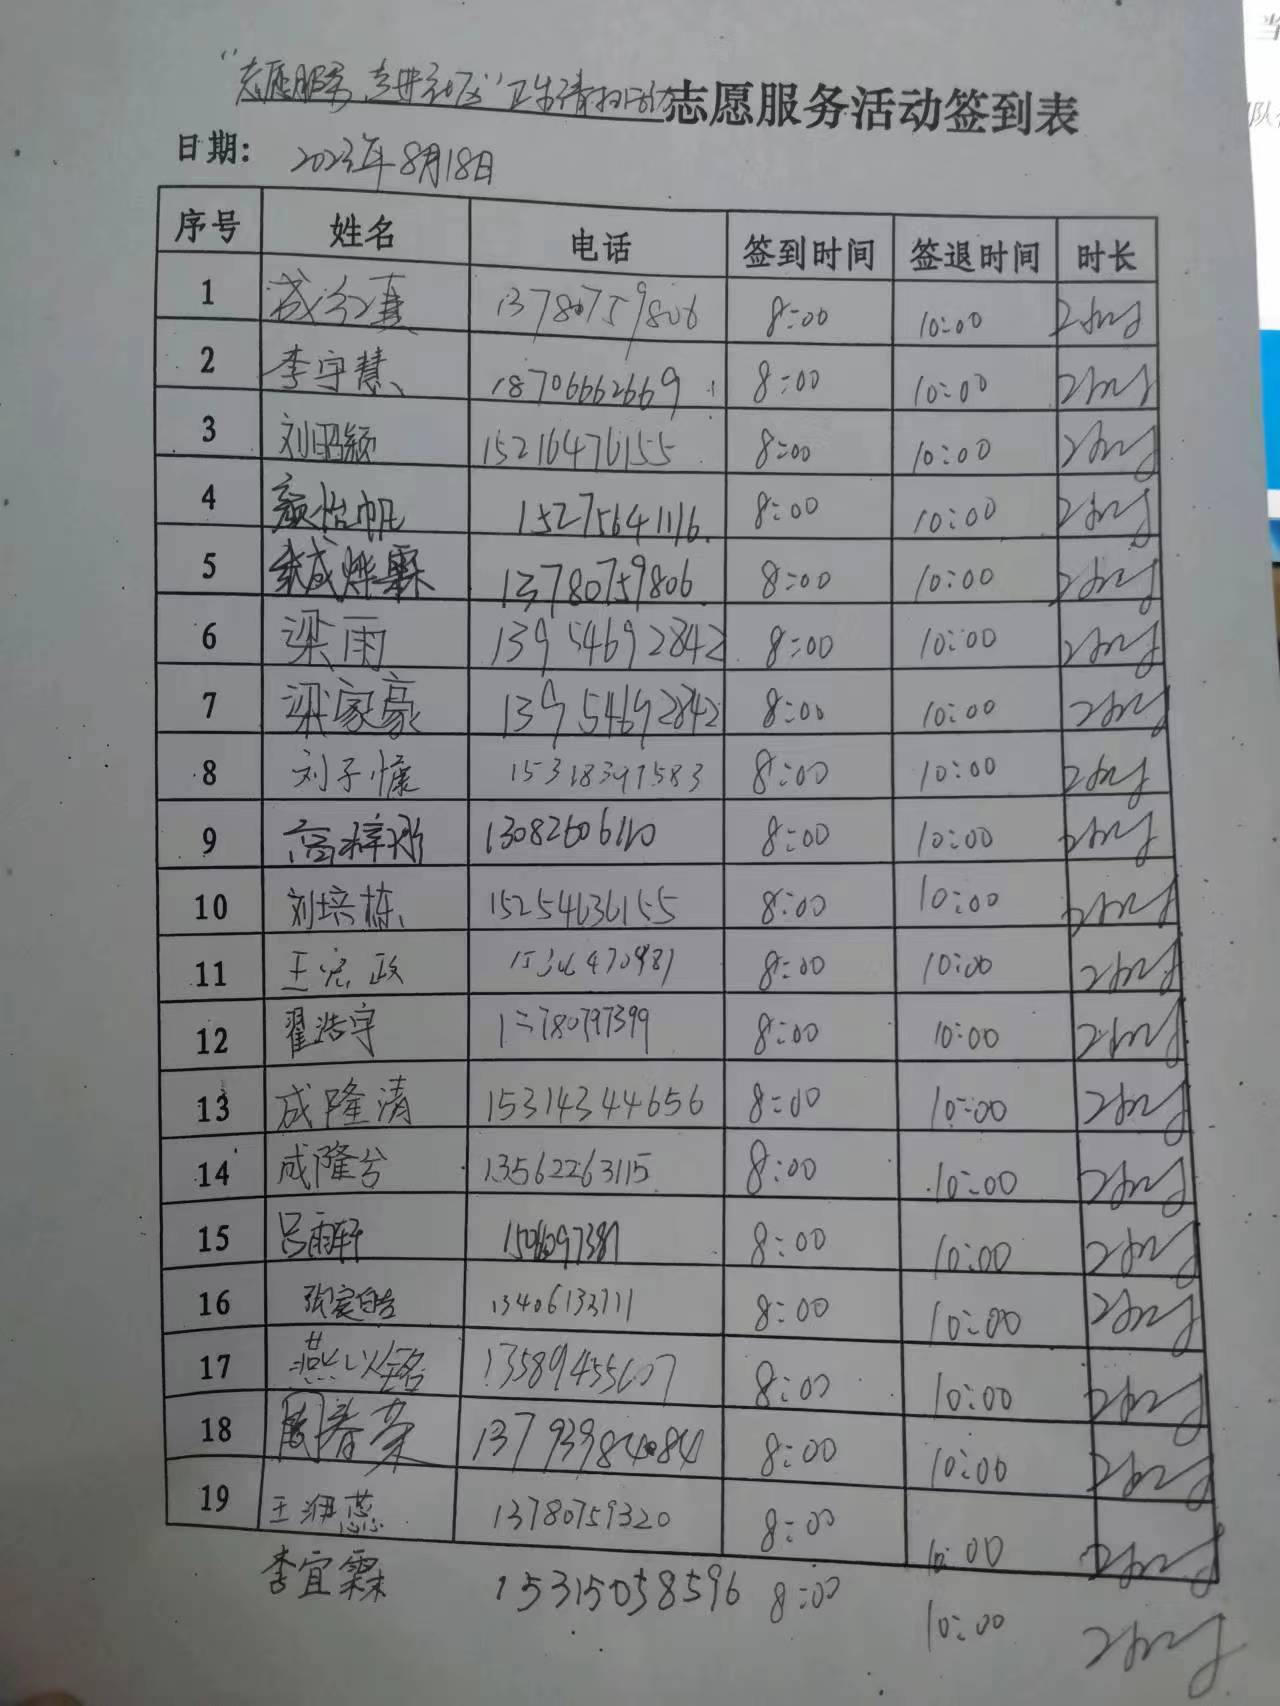 "志愿服务,走进社区"卫生清扫活动志愿服务活动签到表
日期: 2023年8月18日
序号 姓名 电话 签到时间 签退时间 时长
1 13780759806 8:00 10:00 2小时
2 李宇慧 18706662669 8:00 10:00 2小时
3 刘昭颖 15216476155 8:00 10:00 2小时
4 颜怡帆 15275641116 8:00 10:00 2小时
5 13780759806 8:00 10:00 2小时
6 梁雨 13954692842 8:00 10:00 2小时
7 梁家豪 13954692842 8:00 10:00 2小时
8 刘子慷 15318397583 8:00 10:00 2小时
9 高梓彤 13082606110 8:00 10:00 2小时
10 刘培栋 15254636155 8:00 10:00 2小时
11 8:00 10:00 2小时
12 翟浩宇 13780797399 8:00 10:00 2小时
13 成隆清 15314344656 8:00 10:00 2小时
14 成隆兮 13562263115 8:00 10:00 2小时
15 吕雨轩 8:00 10:00 2小时
16 张宸皓 13406133711 8:00 10:00 2小时
17 燕以铭 13589455607 8:00 10:00 2小时
18 周春荣 13793984084 8:00 10:00 2小时
19 13780759320 8:00 10:00 2小时
李宜霖 15315058596 8:00 10:00 2小时
当
队